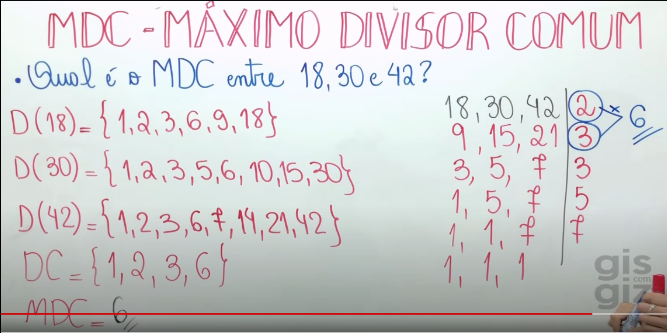 MDC - MÁXIMO DIVISOR COMUM
• Qual é o MDC entre 18, 30 e 42?
D(18) = {1, 2, 3, 6, 9, 18}
D(30) = {1, 2, 3, 5, 6, 10, 15, 30}
D(42) = {1, 2, 3, 6, 7, 14, 21, 42}
DC = {1, 2, 3, 6}
MDC = 6
18, 30, 42 | 2 × 6
9, 15, 21 | 3
3, 5, 7 | 3
1, 5, 7 | 5
1, 1, 7 | 7
1, 1, 1
gis
com
giz